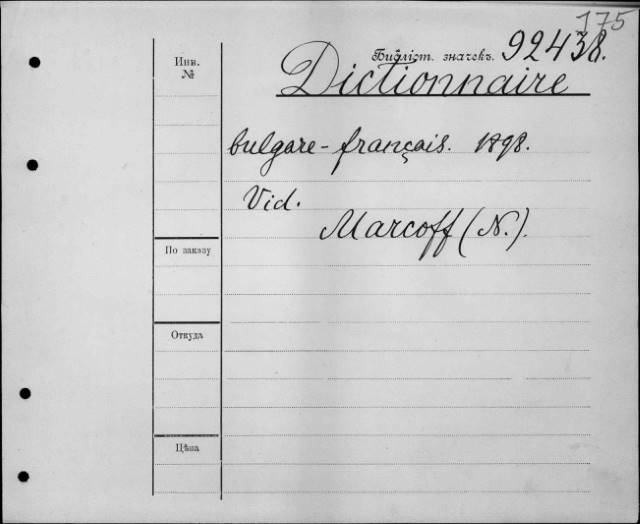 175
Инв.
№
Библіот. значекъ. 92438.
Dictionnaire
bulgare-français. 1898.
Vid.
Marcoff (N.).
По заказу
Откуда
Цѣна